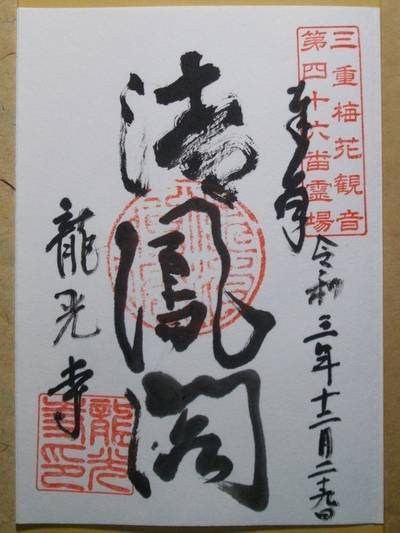 三重梅花観音
第四十六番霊場
奉拝
令和三年十二月二十九日
清鳳閣
龍光寺
龍光
寺印